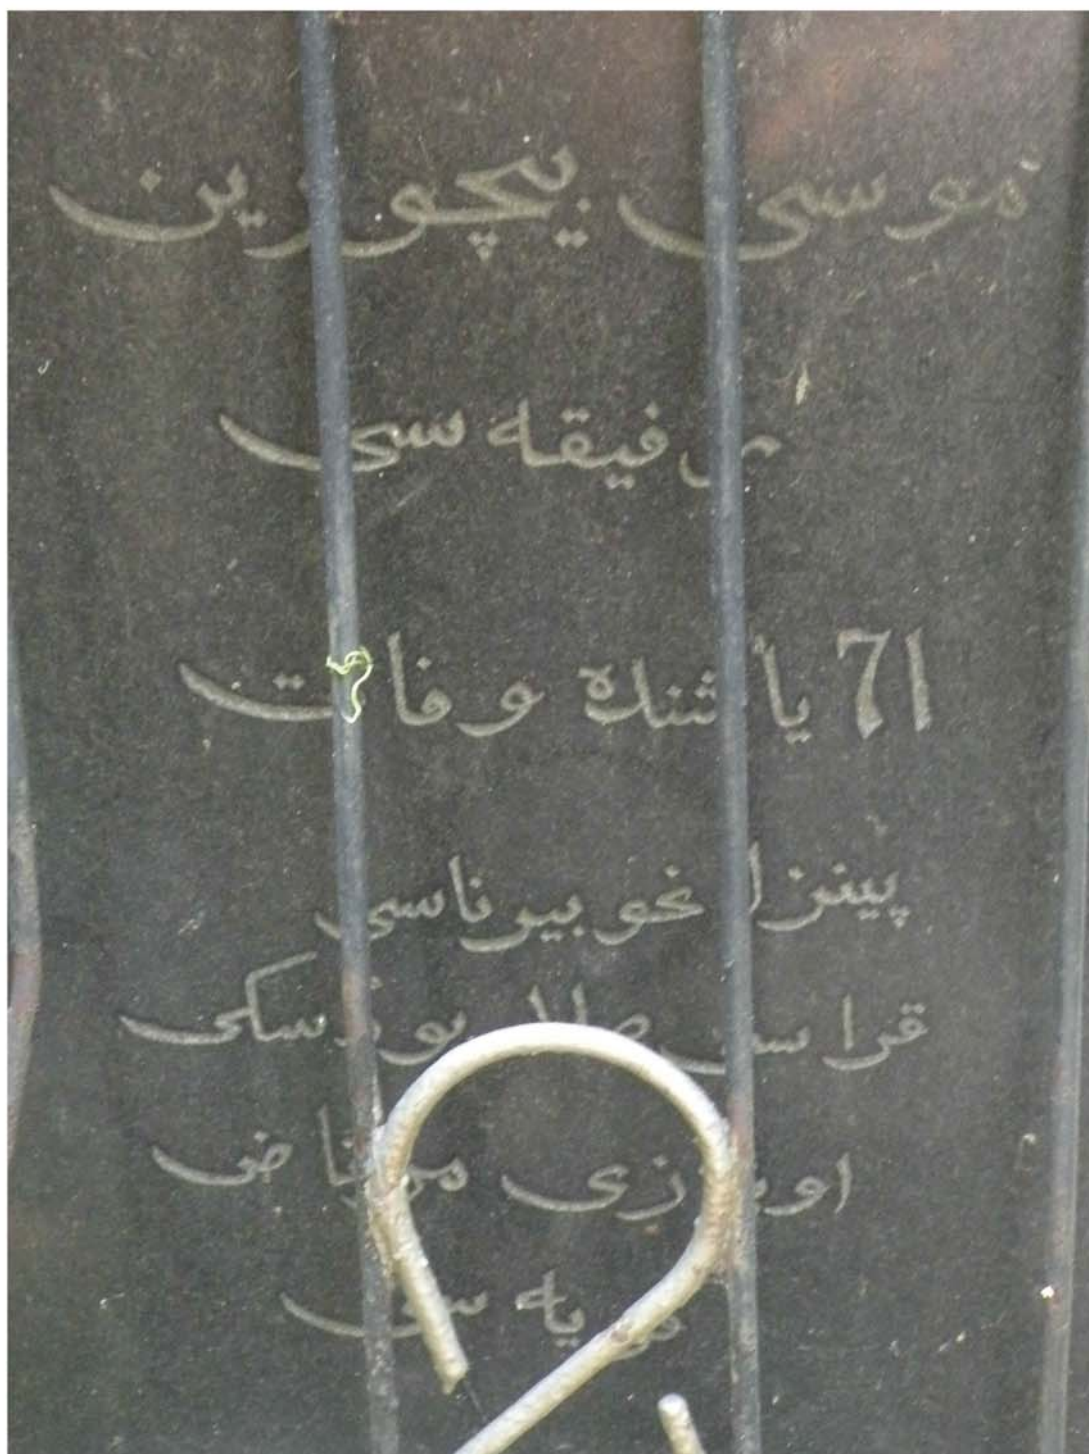 موسی بیچورین
رفیقه سی
71 یاشنده وفات
پینزا غوبیرناسی
قراسنا سلابودسکی
اویازی
قریه سی